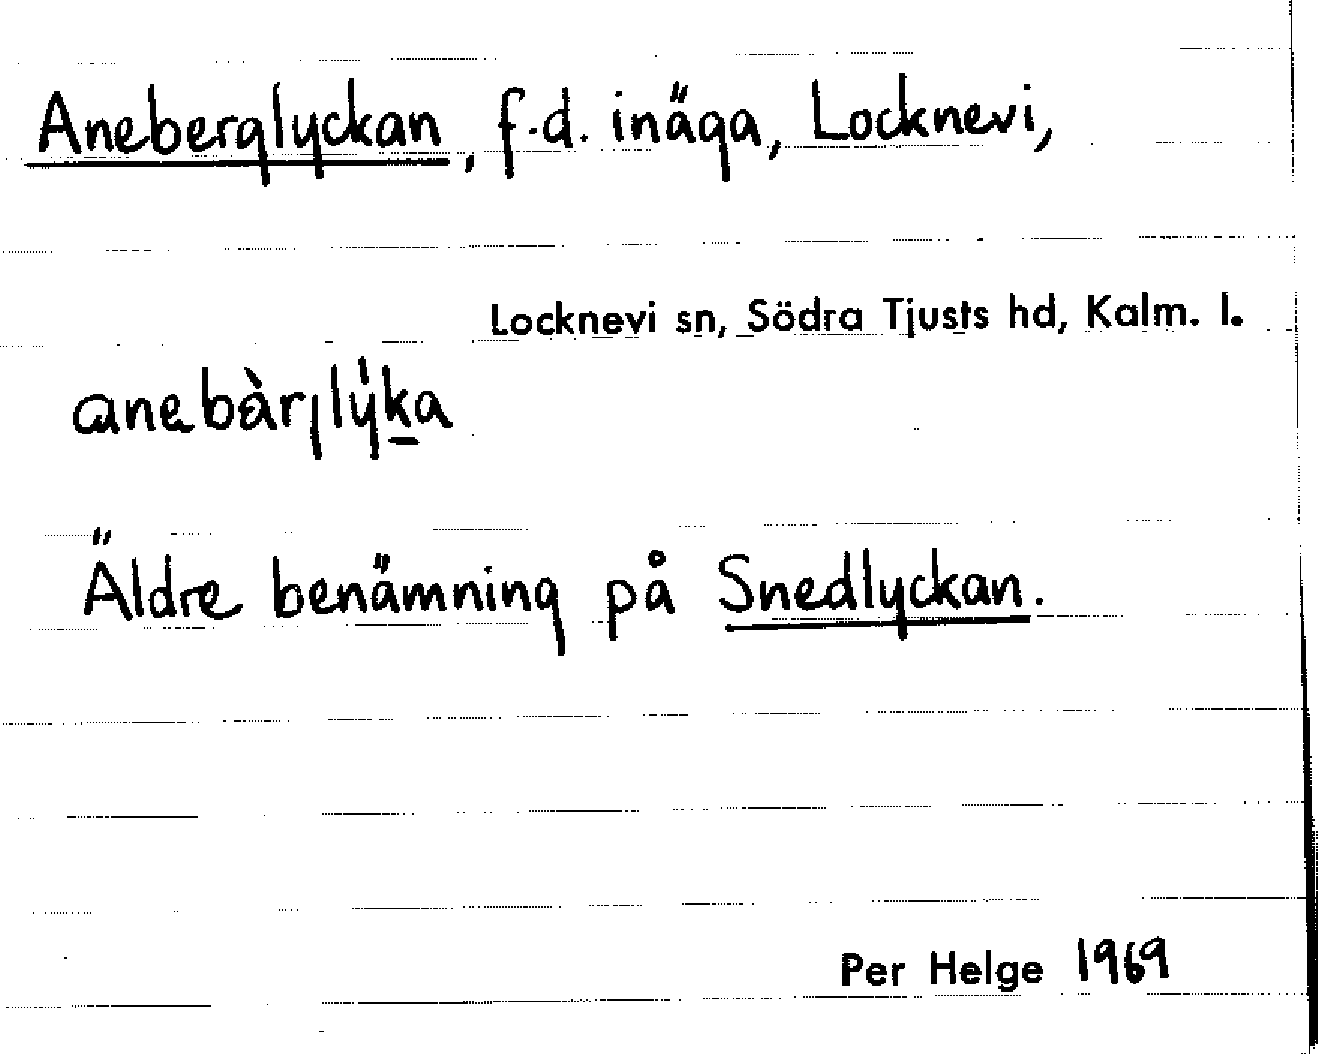 Aneberglyckan, f.d. inäga, Locknevi,
Locknevi sn, Södra Tjusts hd, Kalm. l.
Äldre benämning på Snedlyckan.
Per Helge 1969